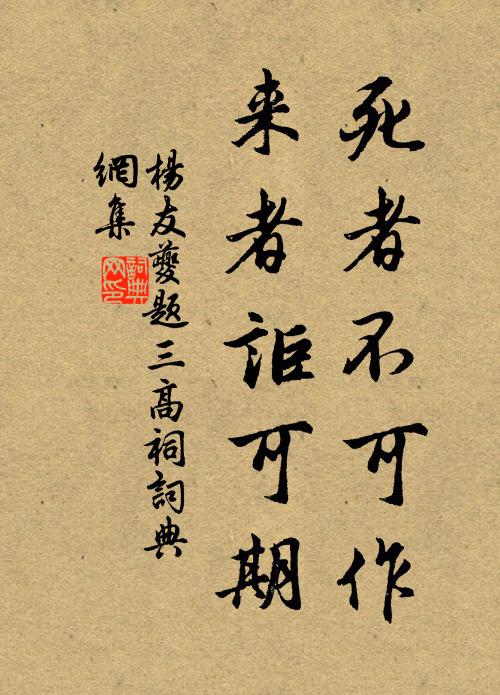 死者不可作
来者詎可期
楊友夔題三高祠詞典
網集
詞典
网印